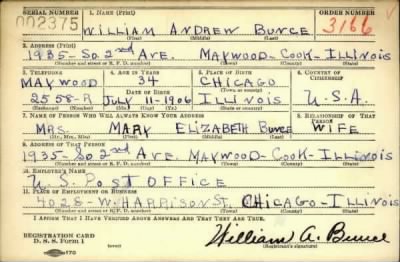 SERIAL NUMBER 1. NAME (Print) ORDER NUMBER
002375 WILLIAM ANDREW BUNCE 3166
(First) (Middle) (Last)
2. ADDRESS (Print)
1935- SO. 2nd AVE. MAYWOOD-COOK-ILLINOIS
(Number and street or R. F. D. number) (Town) (County) (State)
3. TELEPHONE 4. AGE IN YEARS 5. PLACE OF BIRTH 6. COUNTRY OF CITIZENSHIP
MAYWOOD 34 CHICAGO
DATE OF BIRTH (Town or county)
2858 R JULY 11-1906 ILLINOIS U.S.A.
(Exchange) (Number) (Mo.) (Day) (Yr.) (State or country)
7. NAME OF PERSON WHO WILL ALWAYS KNOW YOUR ADDRESS 8. RELATIONSHIP OF THAT PERSON
MRS. MARY ELIZABETH BUNCE WIFE
(Mr., Mrs., Miss) (First) (Middle) (Last)
9. ADDRESS OF THAT PERSON
1935-SO. 2nd AVE. MAYWOOD-COOK-ILLINOIS
(Number and street or R. F. D. number) (Town) (County) (State)
10. EMPLOYER'S NAME
U.S. POST OFFICE
11. PLACE OF EMPLOYMENT OR BUSINESS
4028-W. HARRISON ST. CHICAGO-ILLINOIS
(Number and street or R. F. D. number) (Town) (County) (State)
I AFFIRM THAT I HAVE VERIFIED ABOVE ANSWERS AND THAT THEY ARE TRUE.
REGISTRATION CARD
D. S. S. Form 1 William A. Bunce
(Registrant's signature)